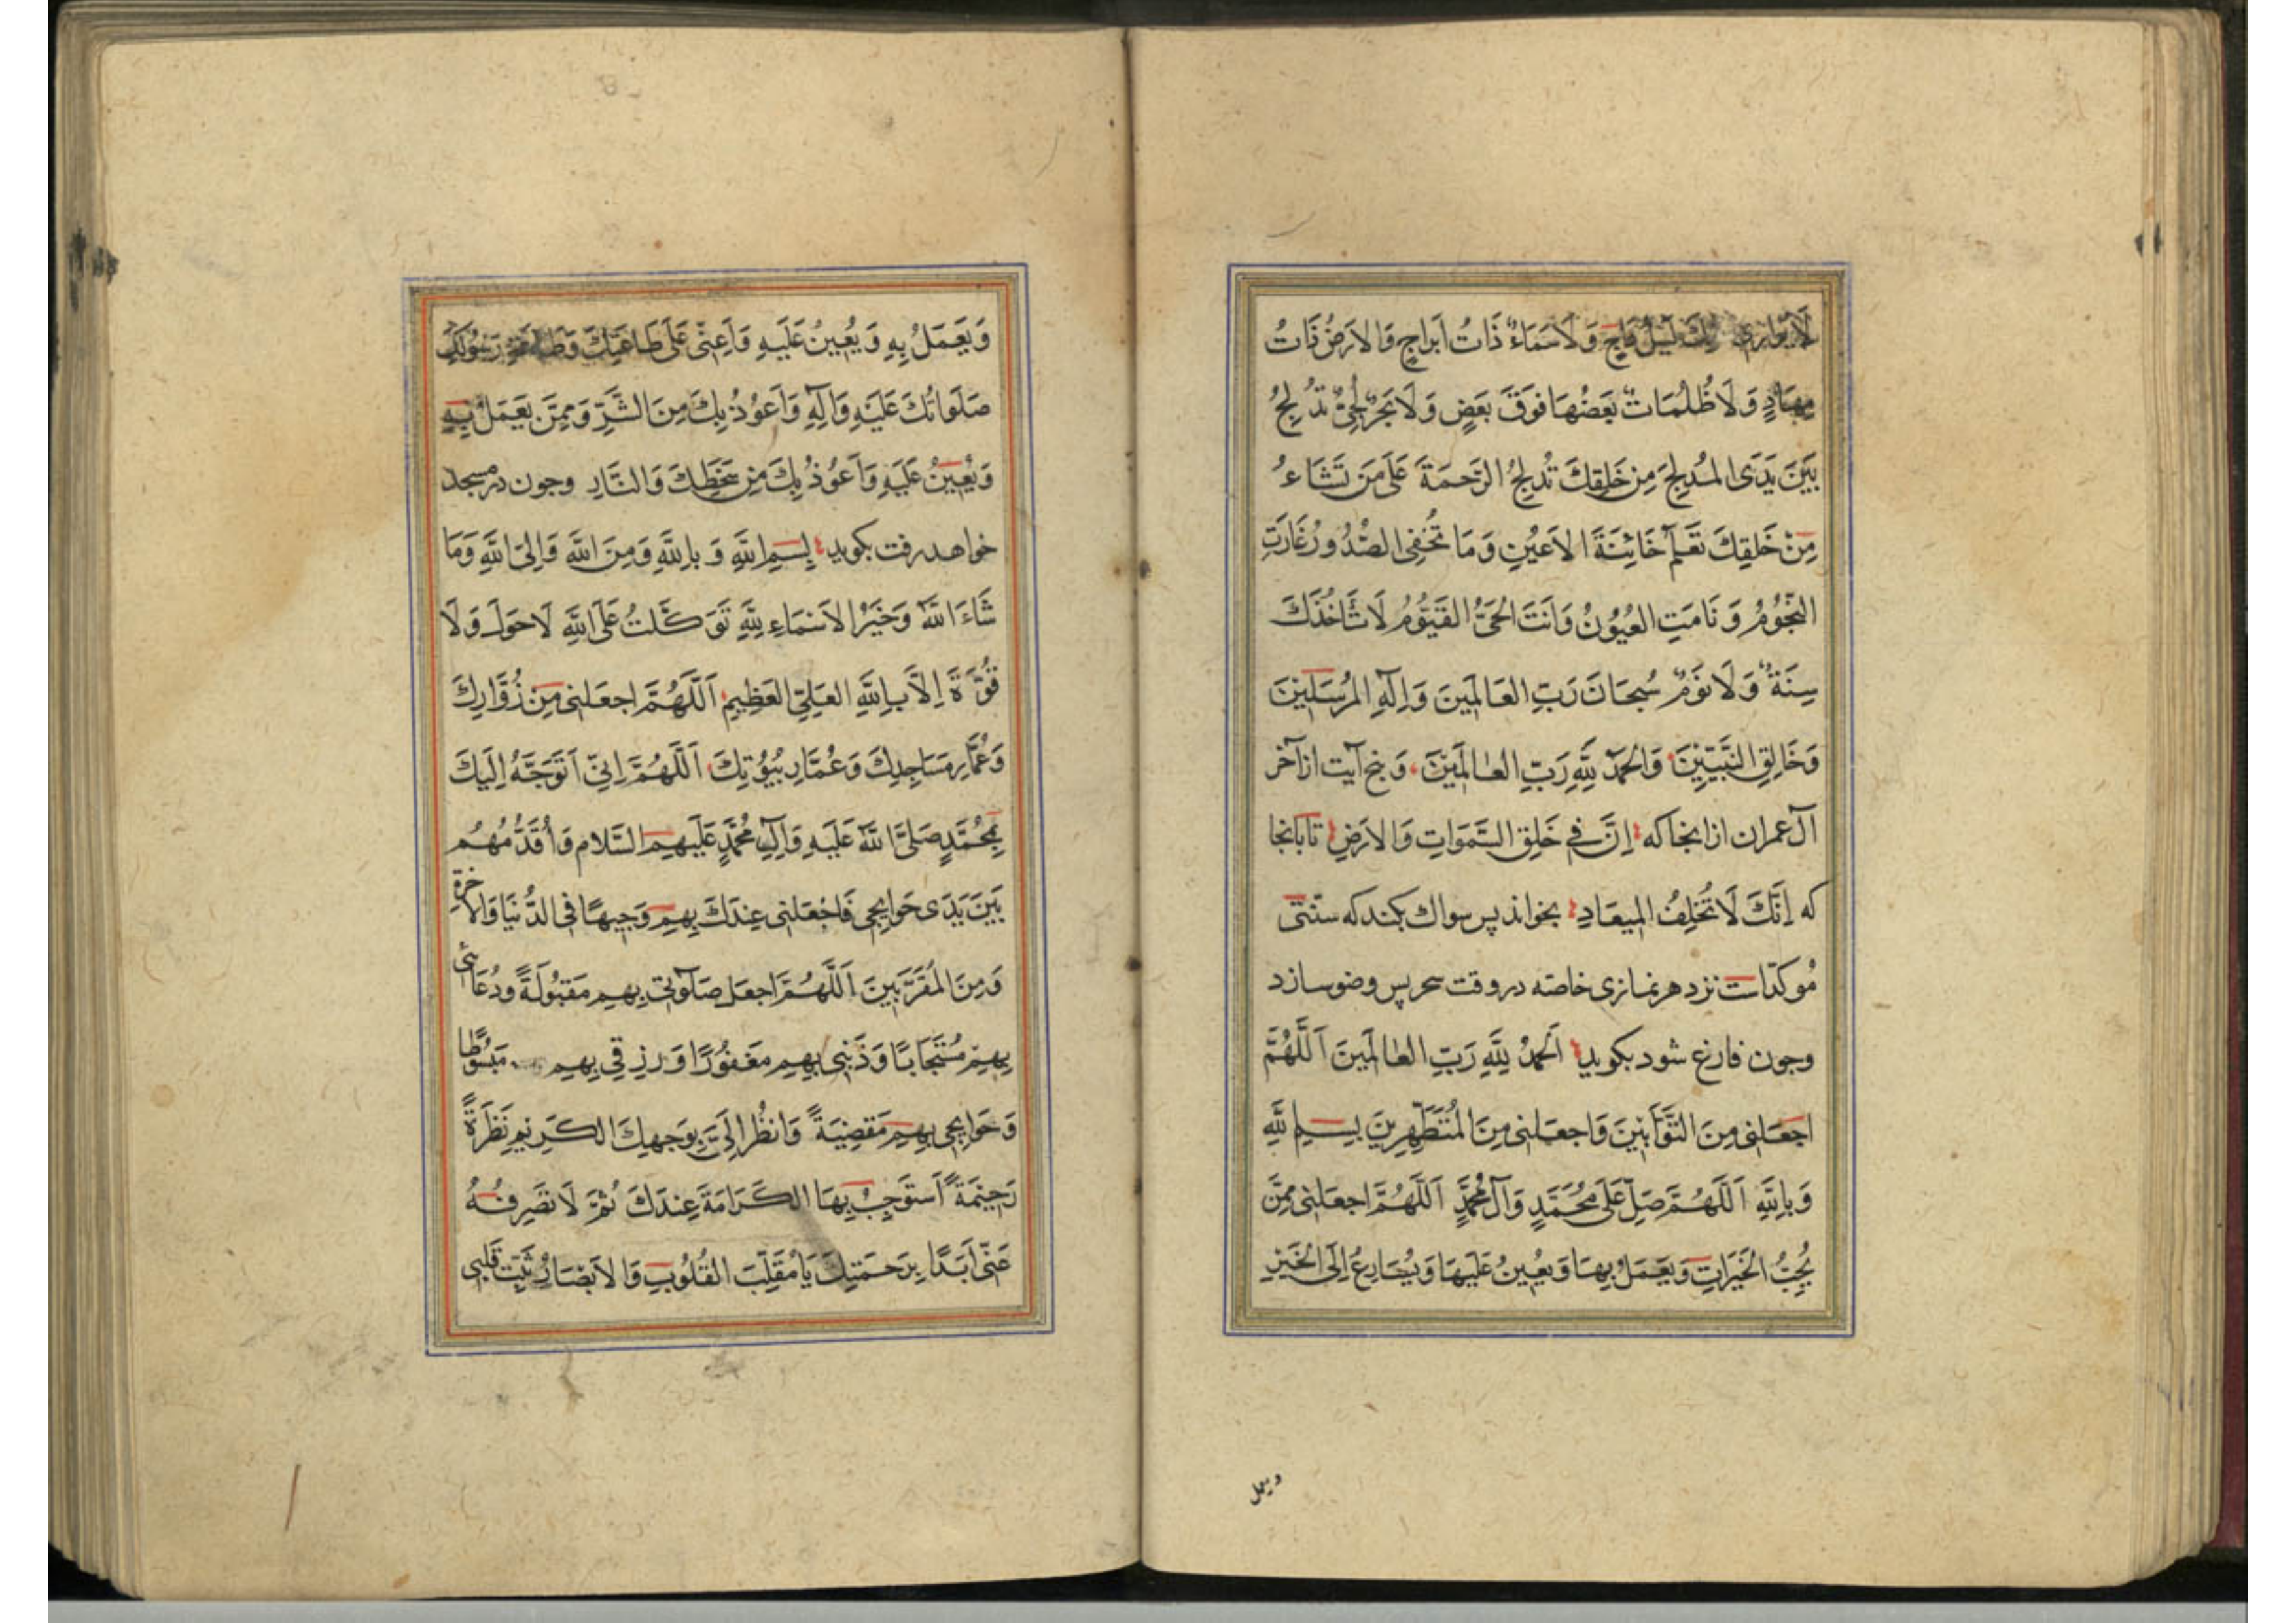 لَا يُوارِى مِنْكَ لَيْلٌ دَاجٍ وَلَا سَمَاءٌ ذَاتُ اَبراجٍ وَالاَرَضُ ذَاتُ
مِهَادٍ وَلَا ظُلُمَاتٌ بَعَضُهَا فَوَقَ بَعَضٍ وَلَا بَحَرٌ لُجِّىٌّ تُدْلِجُ
بَيَنَ يَدَىِ المُدلِجِ مِن خَلِقِكَ تُدلِجُ الرَّحمَةَ عَلَى مَن تَشَاءُ
مِنْ خَلقِكَ تَعَلَمُ خَائِنَةَ الاَعيُنِ وَمَا تُخفِى الصُّدُورُ غَارَتِ
النُّجُوُمُ وَنَامَتِ العُيُوُنُ وَاَنتَ الحَىُّ القَيُّوُمُ لَا تَاخُذُكَ
سِنَةٌ وَلَا نَوَمٌ سُبحَانَ رَبِّ العَالَمِينَ وَاِلَهِ المُرسَلِينَ
وَخَالِقِ النَّبِيّيِنَ وَالحَمدُ لِلَّهِ رَبِّ العالَمِيَنَ وپنج آيت از آخر
آل عمران از انجا كه اِنَّ فِى خَلقِ السَّمَوَاتِ وَالاَرَضِ تا بانجا
كه اِنَّكَ لَا تُخلِفُ المِيعَادِ بخواند پس سواك بكند كه سنّتى
مُوكّداست نزد هر نمازى خاصّه در وقت سحر پس وضو سازد
وچون فارغ شود بكويد اَلحَمدُ لِلَّهِ رَبِّ العالَمِينَ اَللَّهُمَّ
اجعَلنِى مِنَ التَّوَّابِيِنَ وَاجعَلنِى مِنَ المُتَطَهِّرِيِنَ بِسِمِ اللَّهِ
وَبِاللَّهِ اَللَّهُمَّ صَلِّ عَلَى مُحَمَّدٍ وَآلِ مُحَمَّدٍ اَللَّهُمَّ اجعَلنِى مِمَّن
يُحِبُّ الخَيَرَاتِ وَيَعَمَلُ بِهَا وَيُعِيِنُ عَلَيهَا وَيُسَارِعُ اِلَى الخَيرِ
ويعمل
وَيَعَمَلُ بِهِ وَيُعِيِنُ عَلَيهِ وَاَعِنّى عَلَى طَاعَتِكَ وَطَاعَةِ رَسُوُلِكَ
صَلَوَاتُكَ عَلَيَهِ وَآلِهِ وَاَعوُذُ بِكَ مِنَ الشَّرِّ وَمِمَّن يَعَمَلُ بِهِ
وَيُعِيِنُ عَلَيَهِ وَاَعوُذُ بِكَ مِن سَخَطِكَ وَالنَّارِ وچون در مسجد
خواهد رفت بكويد بِسمِ اللَّهِ وَبِاللَّهِ وَمِنَ اللَّهِ وَاِلَى اللَّهِ وَمَا
شَاءَ اللَّهُ وَخَيَرُ الاَسَماءِ لِلَّهِ تَوَكَّلتُ عَلَى اللَّهِ لَا حَولَ وَلَا
قُوَّةَ اِلاَّ بِاللَّهِ العَلِىِّ العَظِيمِ اَللَّهُمَّ اجعَلنِى مِن زُوَّارِكَ
وَعُمَّارِ مَسَاجِدِكَ وَعُمَّارِ بُيُوُتِكَ اَللَّهُمَّ اِنِّى اَتَوَجَّهُ اِلَيكَ
بِمُحَمَّدٍ صَلَّى اللَّهُ عَلَيَهِ وَآلِ مُحَمَّدٍ عَلَيهِمِ السَّلام وَاُقَدِّمُهُم
بَيَنَ يَدَى حَوايِجِى فَاجعَلنِى عِندَكَ بِهِمِ وَجِيهًا فى الدُّنيَا وَالآخرة
وَمِنَ المُقَرَّبِينَ اَللَّهُمَّ اجعَل صَلَوتِى بِهِم مَقبُولَةً ودُعَائى
بِهِم مُستَجَابًا وَذَنبِى بِهِم مَغفُورًا وَرِزقِى بِهِم مَبسُوطًا
وَحَوايِجِى بِهِم مَقضِيَةً وَانظُر اِلَىَّ بِوَجهِكَ الكَرِيِمِ نَظرَةً
رَحِيَمةً اَستَوجِبُ بِهَا الكَرَامَةَ عِندَكَ ثُمَّ لَا تَصَرِفهُ
عَنِّى اَبَدًا بِرَحمَتِكَ يَا مُقَلِّبَ القُلُوُبِ وَالاَبصَارِ ثَبِّت قَلبِى